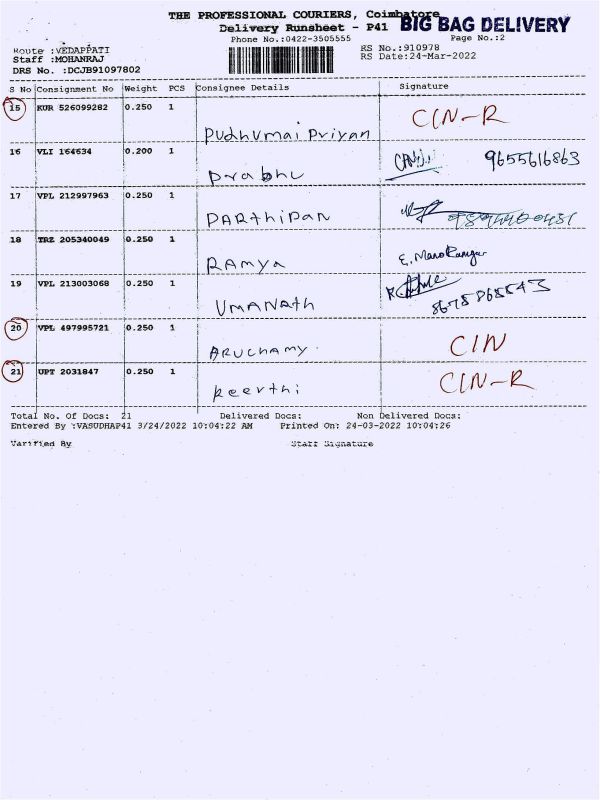 THE PROFESSIONAL COURIERS, Coimbatore
BIG BAG DELIVERY
Delivery Runsheet - P41
Phone No.:0422-3505555 Page No.:2
Route :VEDAPPATI RS No.:910978
Staff :MOHANRAJ RS Date:24-Mar-2022
DRS No. :DCJB91097802
S No Consignment No Weight PCS Consignee Details Signature
15 KUR 526099282 0.250 1 Pudhumai Priyan CIN-R
16 VLI 164634 0.200 1 Prabhu 9655616863
17 VPL 212997963 0.250 1 PARthipan
18 TRZ 205340049 0.250 1 RAmya
19 VPL 213003068 0.250 1 UMANAth
20 VPL 497995721 0.250 1 ARUCHAMY. CIN
21 UPT 2031847 0.250 1 keerthi CIN-R
Total No. Of Docs: 21 Delivered Docs: Non Delivered Docs:
Entered By :VASUDHAP41 3/24/2022 10:04:22 AM Printed On: 24-03-2022 10:04:26
Varified By Staff Signature